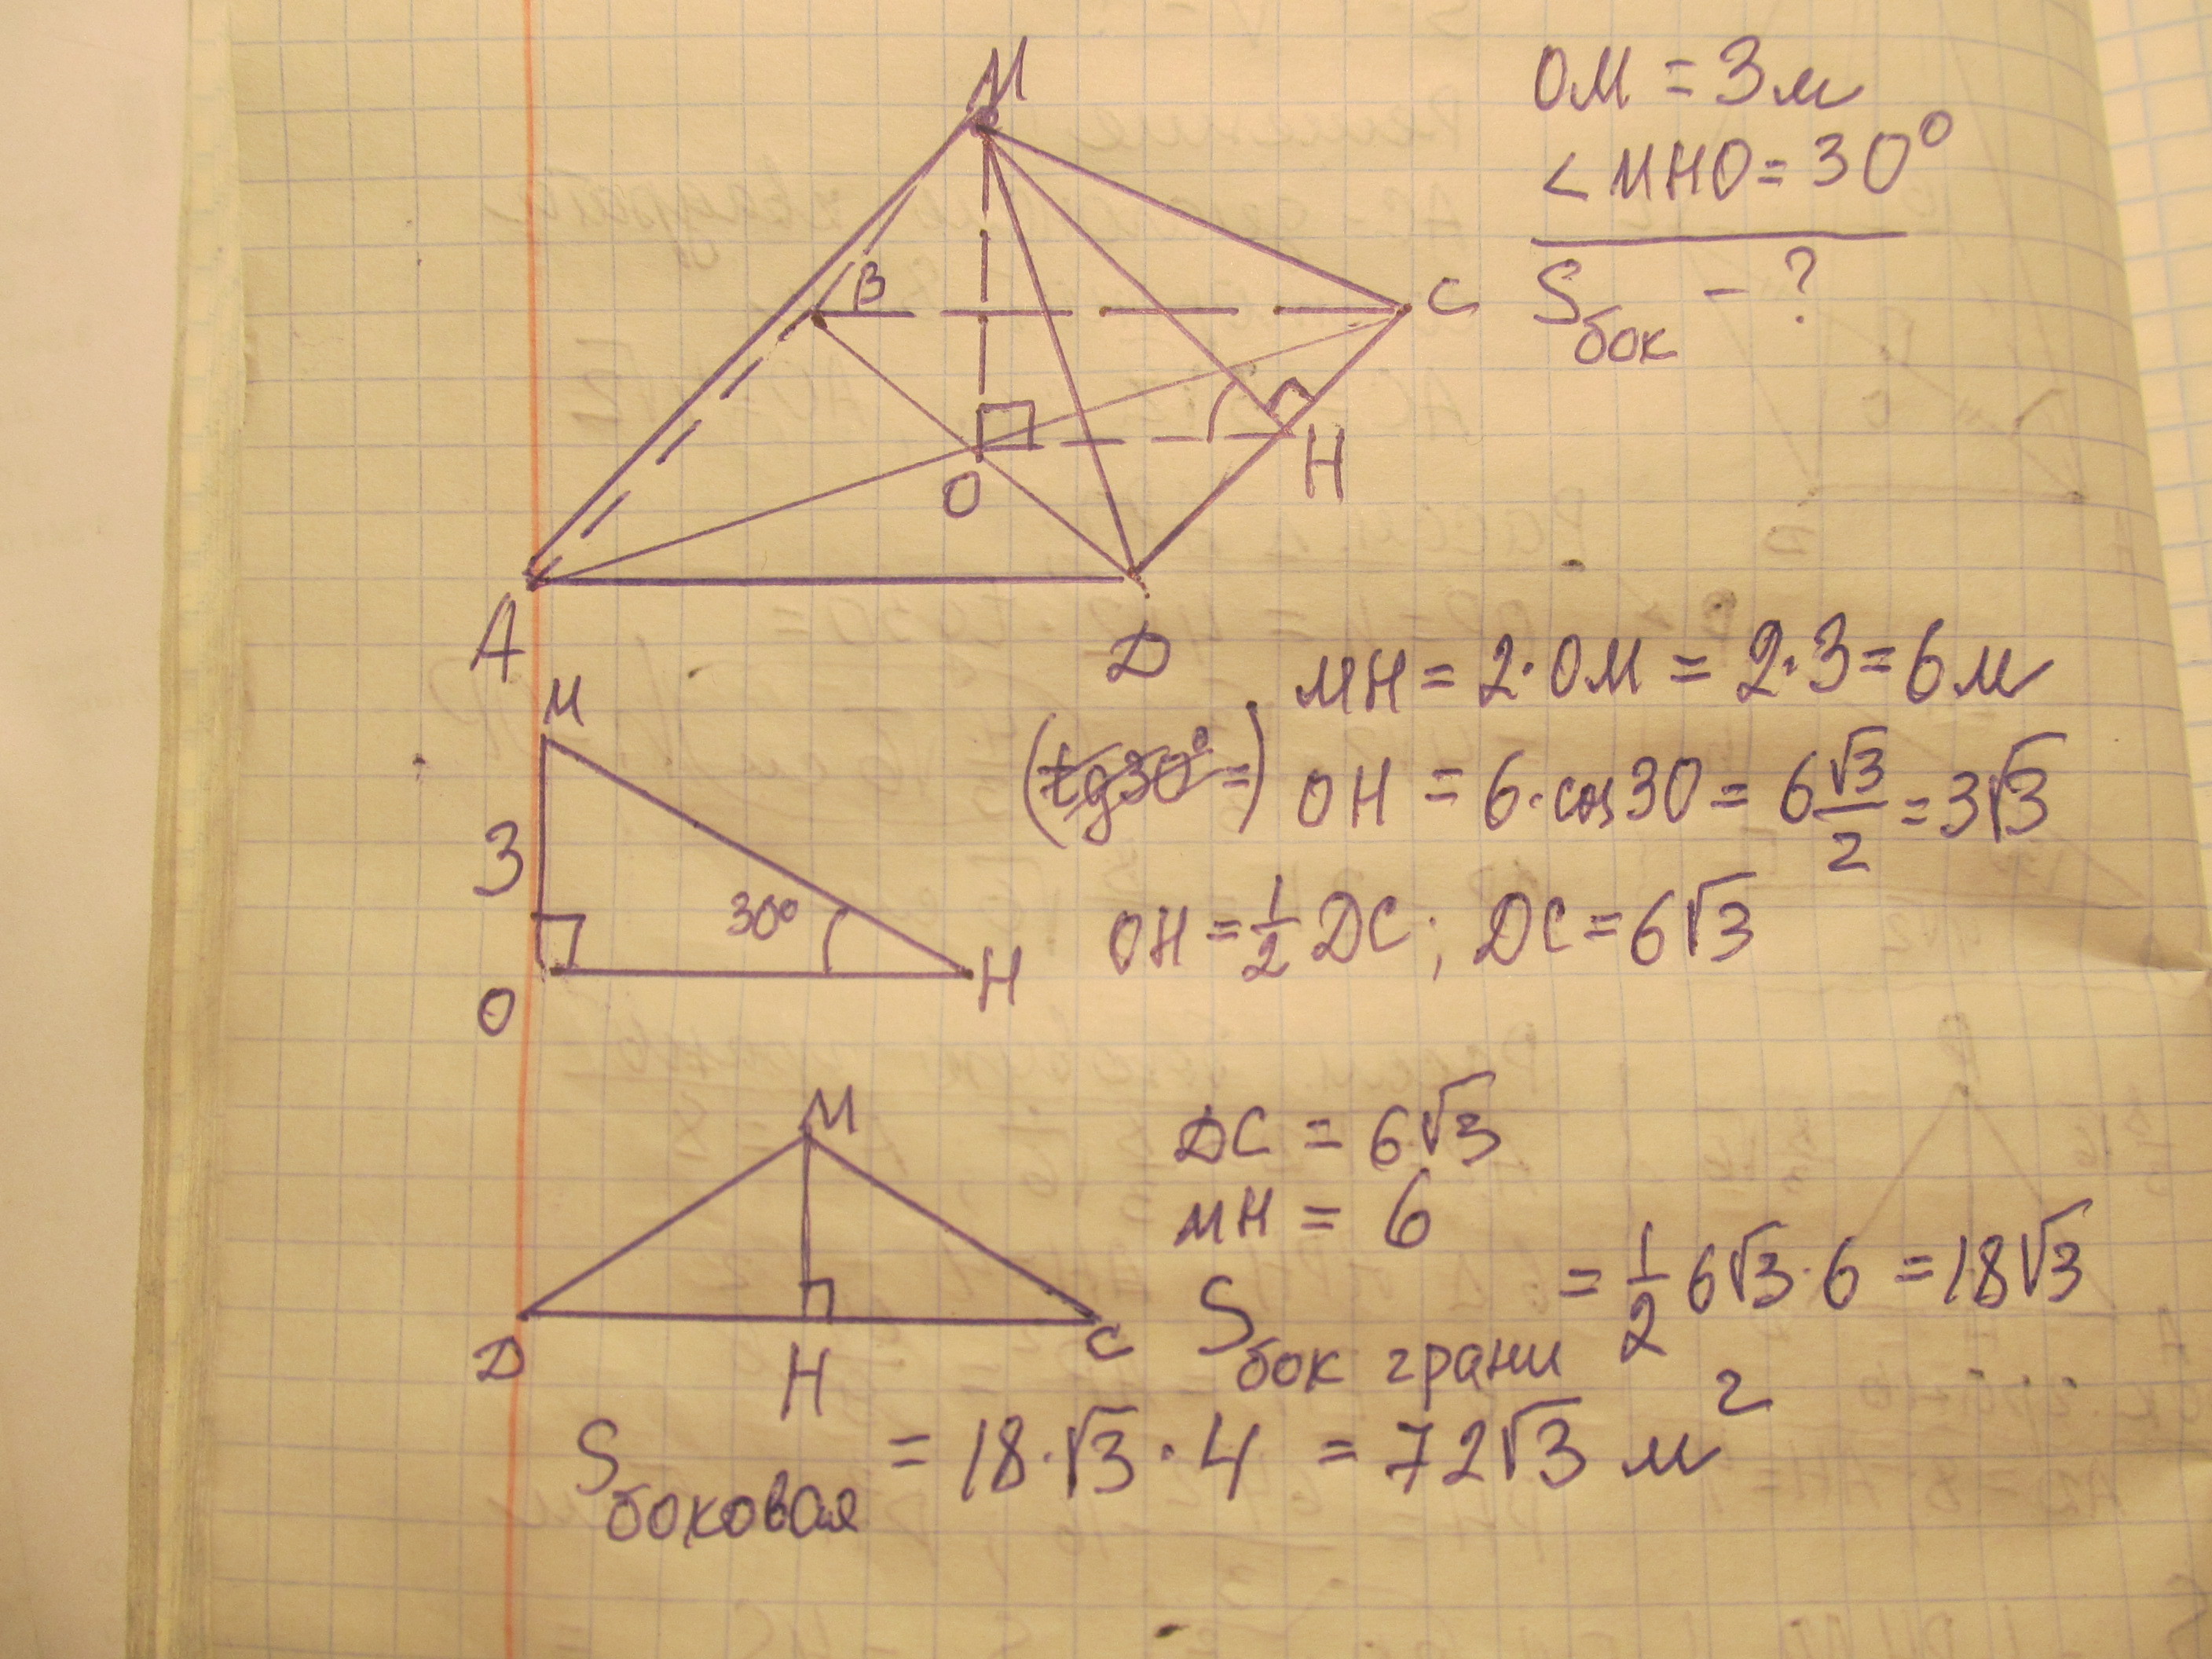 M
OM = 3м
< MHO = 30°
Sбок - ?
B
C
O
H
A
D
MH = 2·OM = 2·3 = 6м
(tg30° =) OH = 6·cos30 = 6 √3/2 = 3√3
OH = 1/2 DC; DC = 6√3
M
3
30°
O
H
M
D
H
C
DC = 6√3
MH = 6
Sбок грани = 1/2 6√3·6 = 18√3
Sбоковая = 18·√3·4 = 72√3 м²